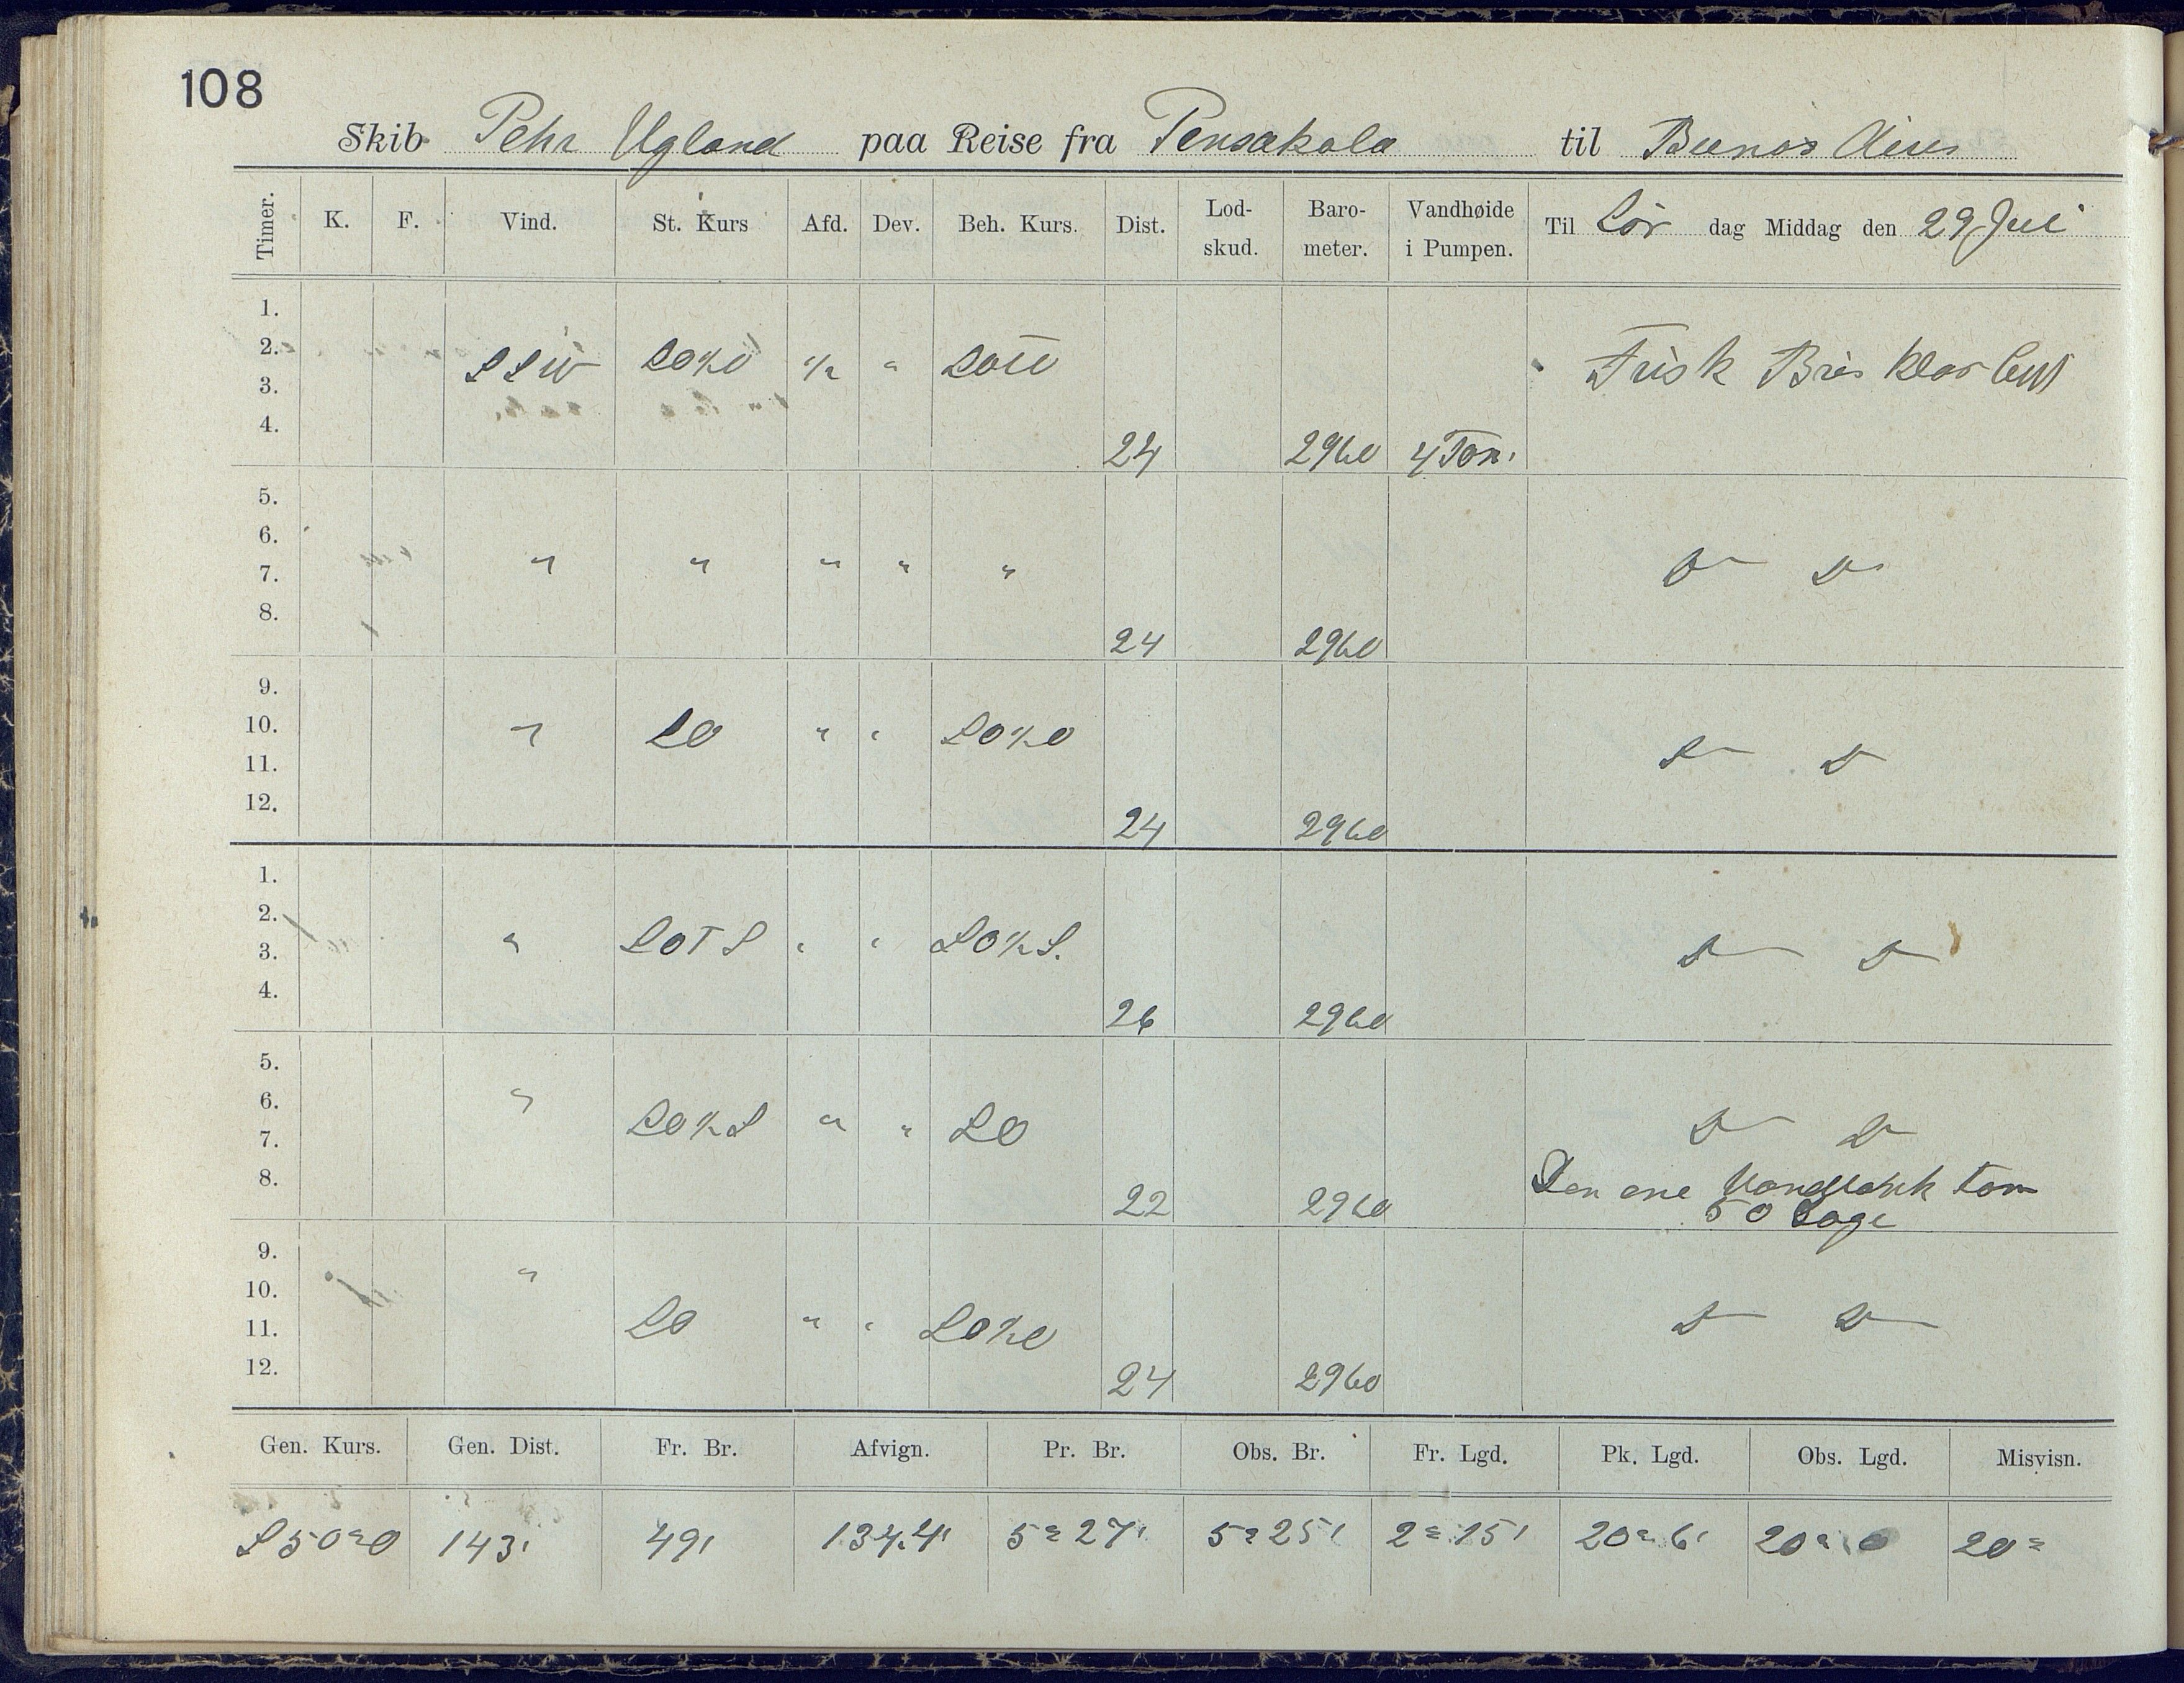 108
Skib Pehr Ugland paa Reise fra Pensakola til Buenos Aires
Timer. K. F. Vind. St. Kurs Afd. Dev. Beh. Kurs. Dist. Lod-skud. Baro-meter. Vandhøide i Pumpen. Til Lör dag Middag den 29 Juli
1.
2. SSW SO½O ½ " Frisk Bris klar luft
3.
4. 24 2960 4 Tom.
5.
6.
7. " " " " " D D
8. 24 2960
9.
10. " SO " " SO½O
11. D D
12. 24 2960
1.
2.
3. " SOTS " " SO½S. D D
4. 26 2960
5.
6. "
7. SO½S " " SO D D
8. Den ene Vandtank tom
22 2960 50 Dage
9. "
10.
11. SO " " SO½O D D
12. 24 2960
Gen. Kurs. Gen. Dist. Fr. Br. Afvign. Pr. Br. Obs. Br. Fr. Lgd. Pk. Lgd. Obs. Lgd. Misvisn.
S50°O 143' 49' 134.4' 5° 27' 5° 25' 2° 15' 20° 6' 20° 0 20°